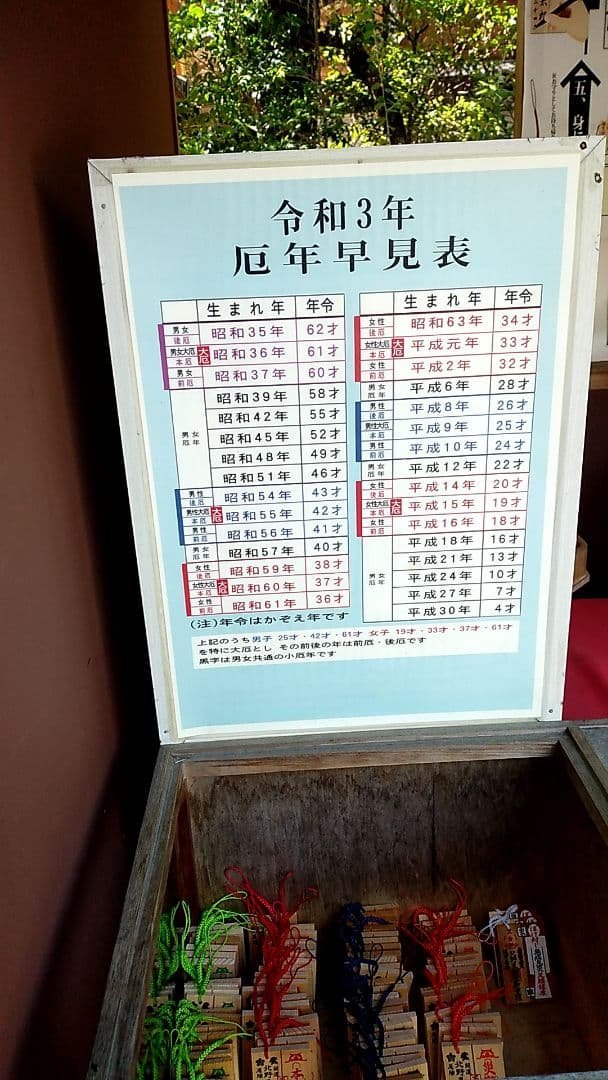 五、身に
令和3年
厄年早見表
生まれ年 年令
男女 後厄 昭和35年 62才
男女大厄 本厄 大厄 昭和36年 61才
男女 前厄 昭和37年 60才
男女 厄年
昭和39年 58才
昭和42年 55才
昭和45年 52才
昭和48年 49才
昭和51年 46才
男性 後厄 昭和54年 43才
男性大厄 本厄 大厄 昭和55年 42才
男性 前厄 昭和56年 41才
男女 厄年 昭和57年 40才
女性 後厄 昭和59年 38才
女性大厄 本厄 大厄 昭和60年 37才
女性 前厄 昭和61年 36才
生まれ年 年令
女性 後厄 昭和63年 34才
女性大厄 本厄 大厄 平成元年 33才
女性 前厄 平成2年 32才
男女 厄年 平成6年 28才
男性 後厄 平成8年 26才
男性大厄 本厄 平成9年 25才
男性 前厄 平成10年 24才
男女 厄年 平成12年 22才
女性 後厄 平成14年 20才
女性大厄 本厄 大厄 平成15年 19才
女性 前厄 平成16年 18才
男女 厄年
平成18年 16才
平成21年 13才
平成24年 10才
平成27年 7才
平成30年 4才
(注)年令はかぞえ年です
上記のうち男子 25才・42才・61才 女子 19才・33才・37才・61才
を特に大厄とし その前後の年は前厄・後厄です
黒字は男女共通の小厄年です
北野